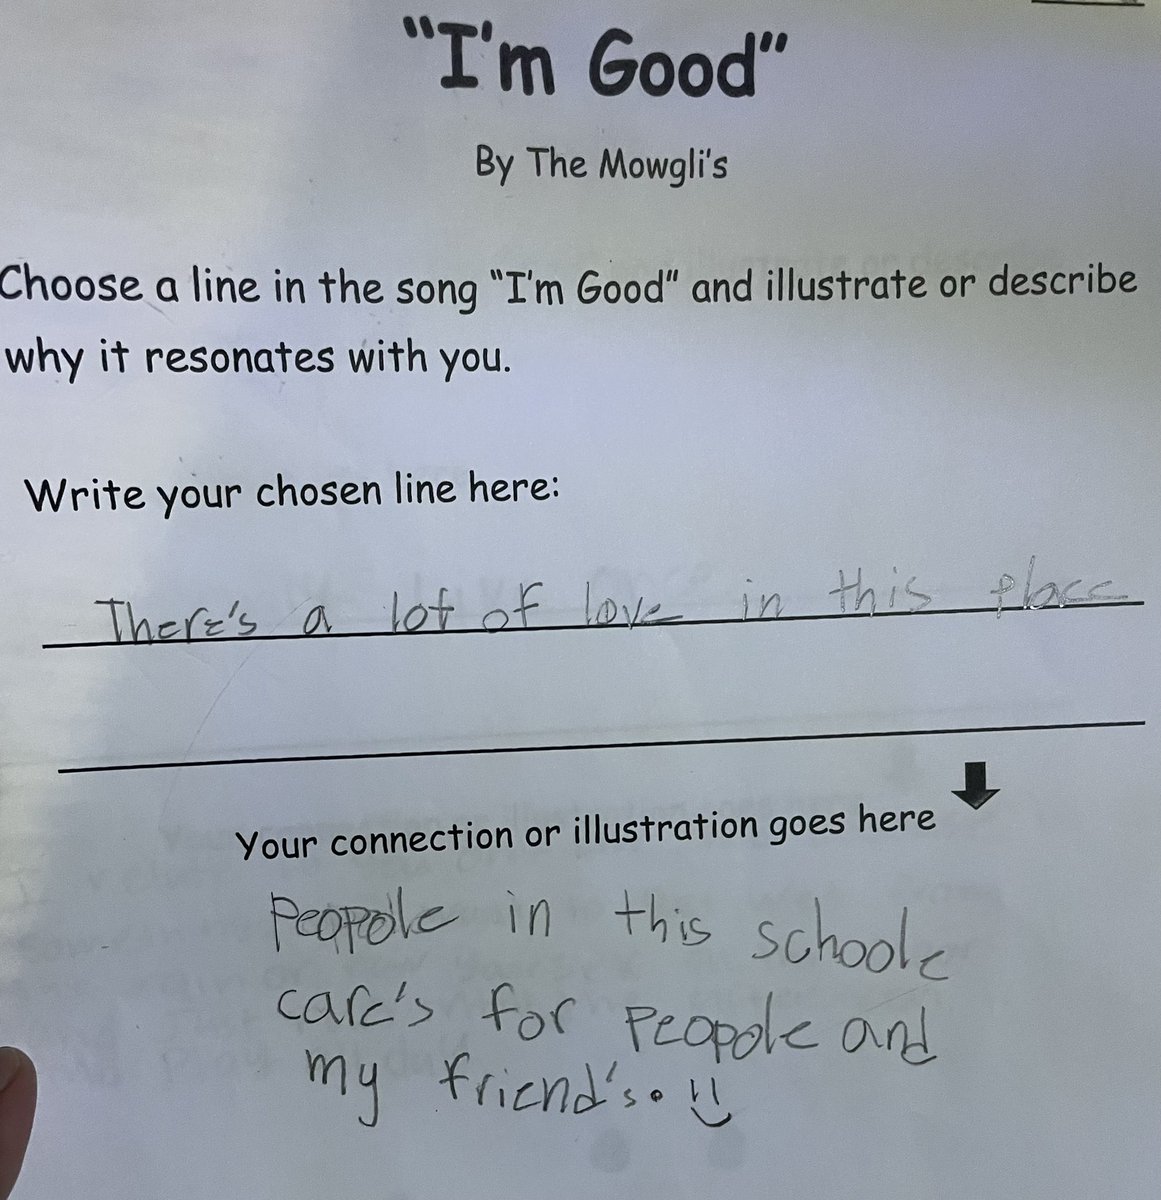 "I'm Good"
By The Mowgli's
Choose a line in the song "I'm Good" and illustrate or describe
why it resonates with you.
Write your chosen line here:
There's a lot of love in this place
Your connection or illustration goes here
Peopole in this schoole
care's for Peopole and
my friend's.